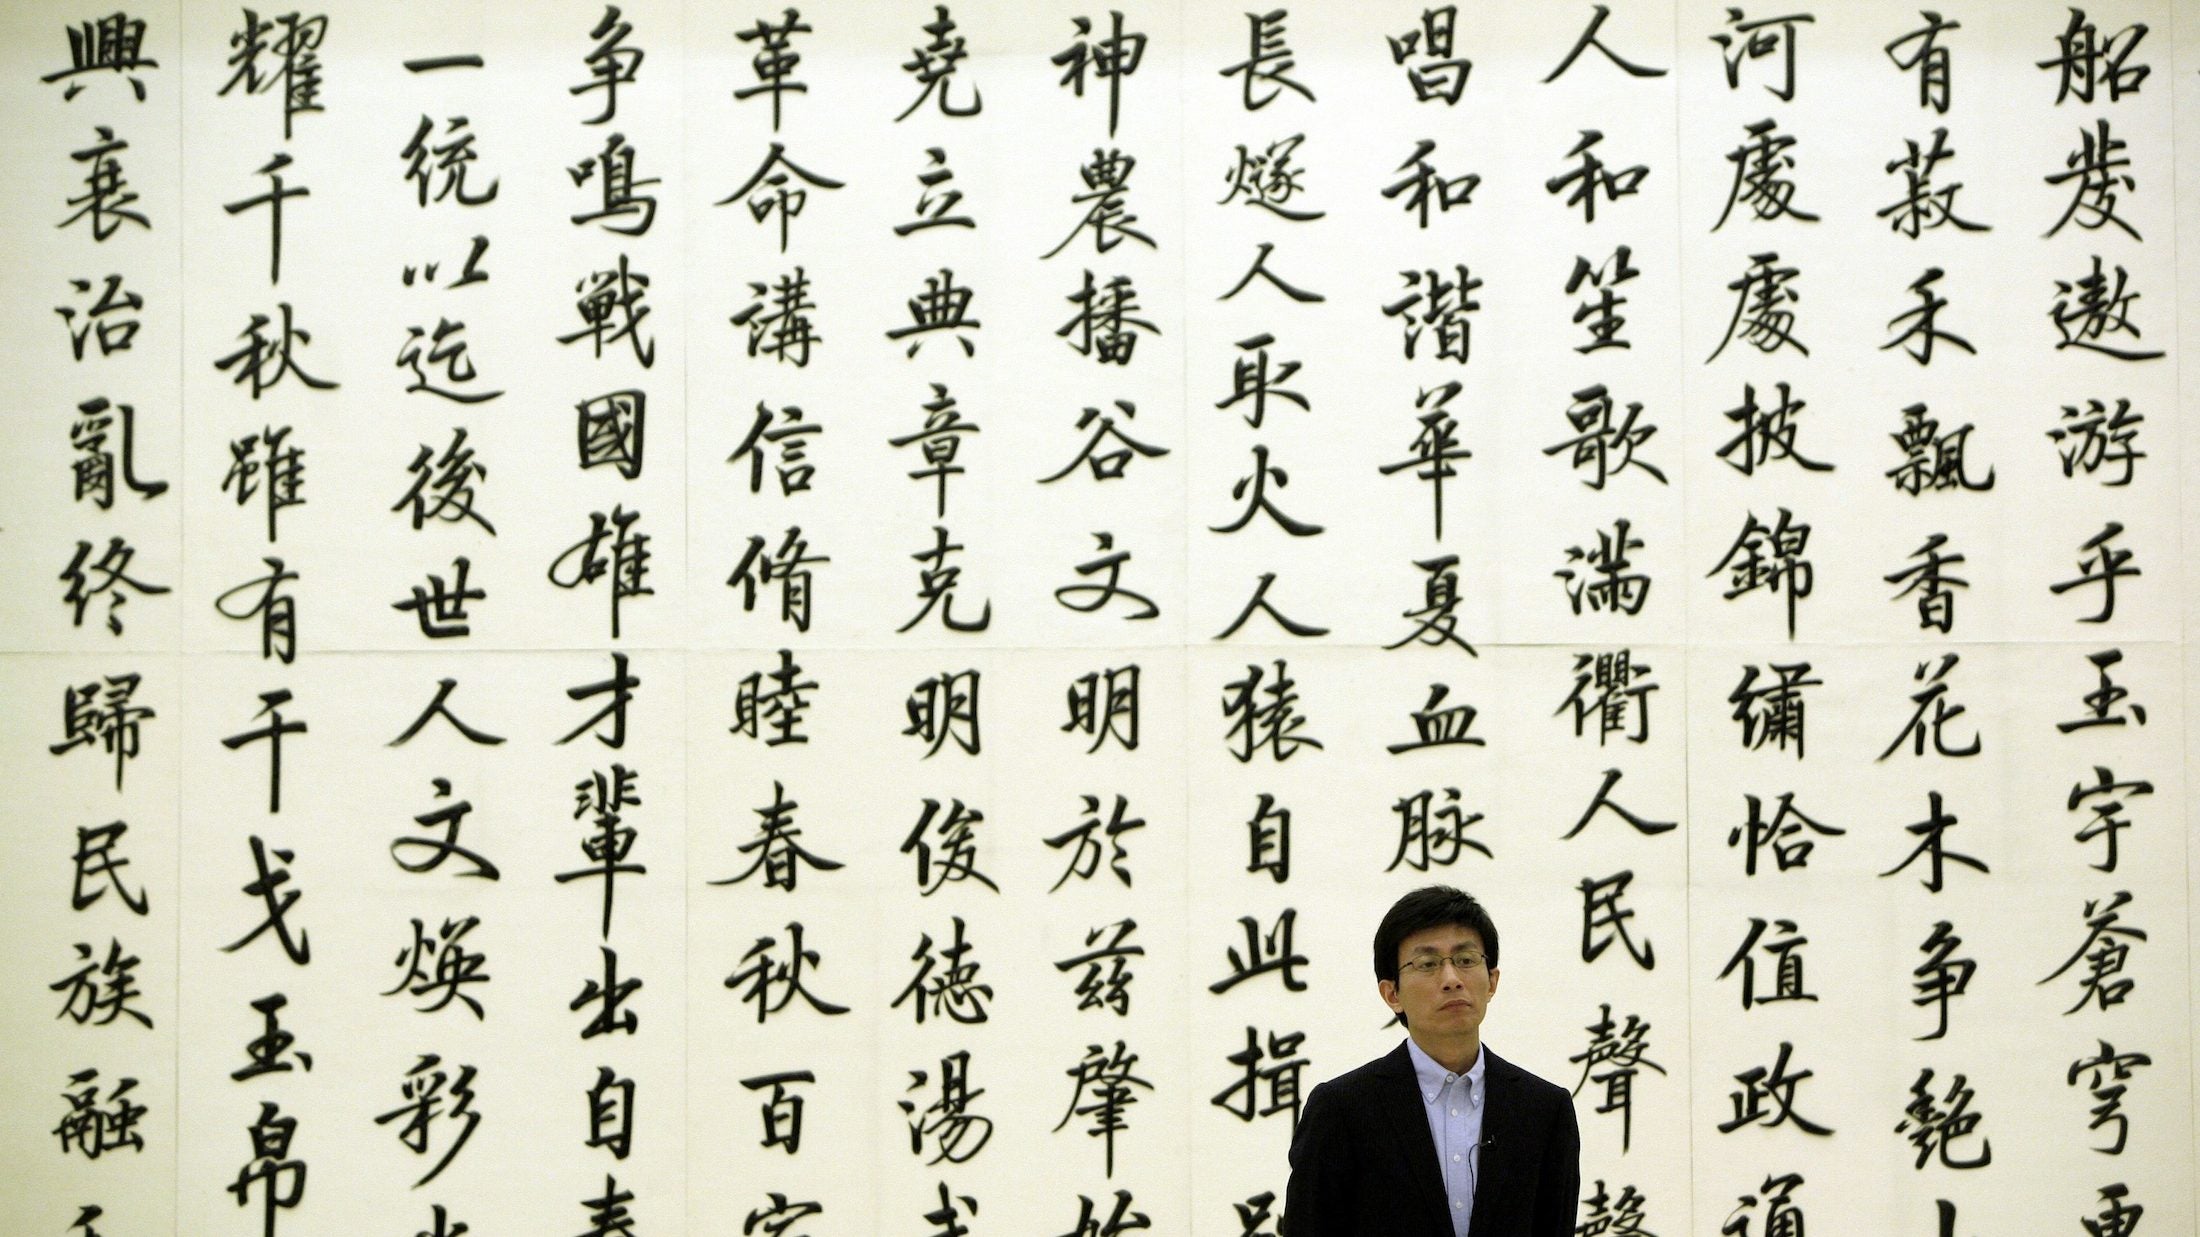 船發遨游乎玉宇蒼穹
有菽禾飄香花木争艷
河處處披錦繡恰值政通
人和笙歌滿衢人民聲聲
唱和諧華夏血脉
長燧人取火人猿自此揖
神農播谷文明於兹肇始
堯立典章克明俊德湯武
革命講信脩睦春秋百家
争鳴戰國雄才輩出自秦
一統以迄後世人文焕彩
耀千秋雖有干戈玉帛
興衰治亂終歸民族融